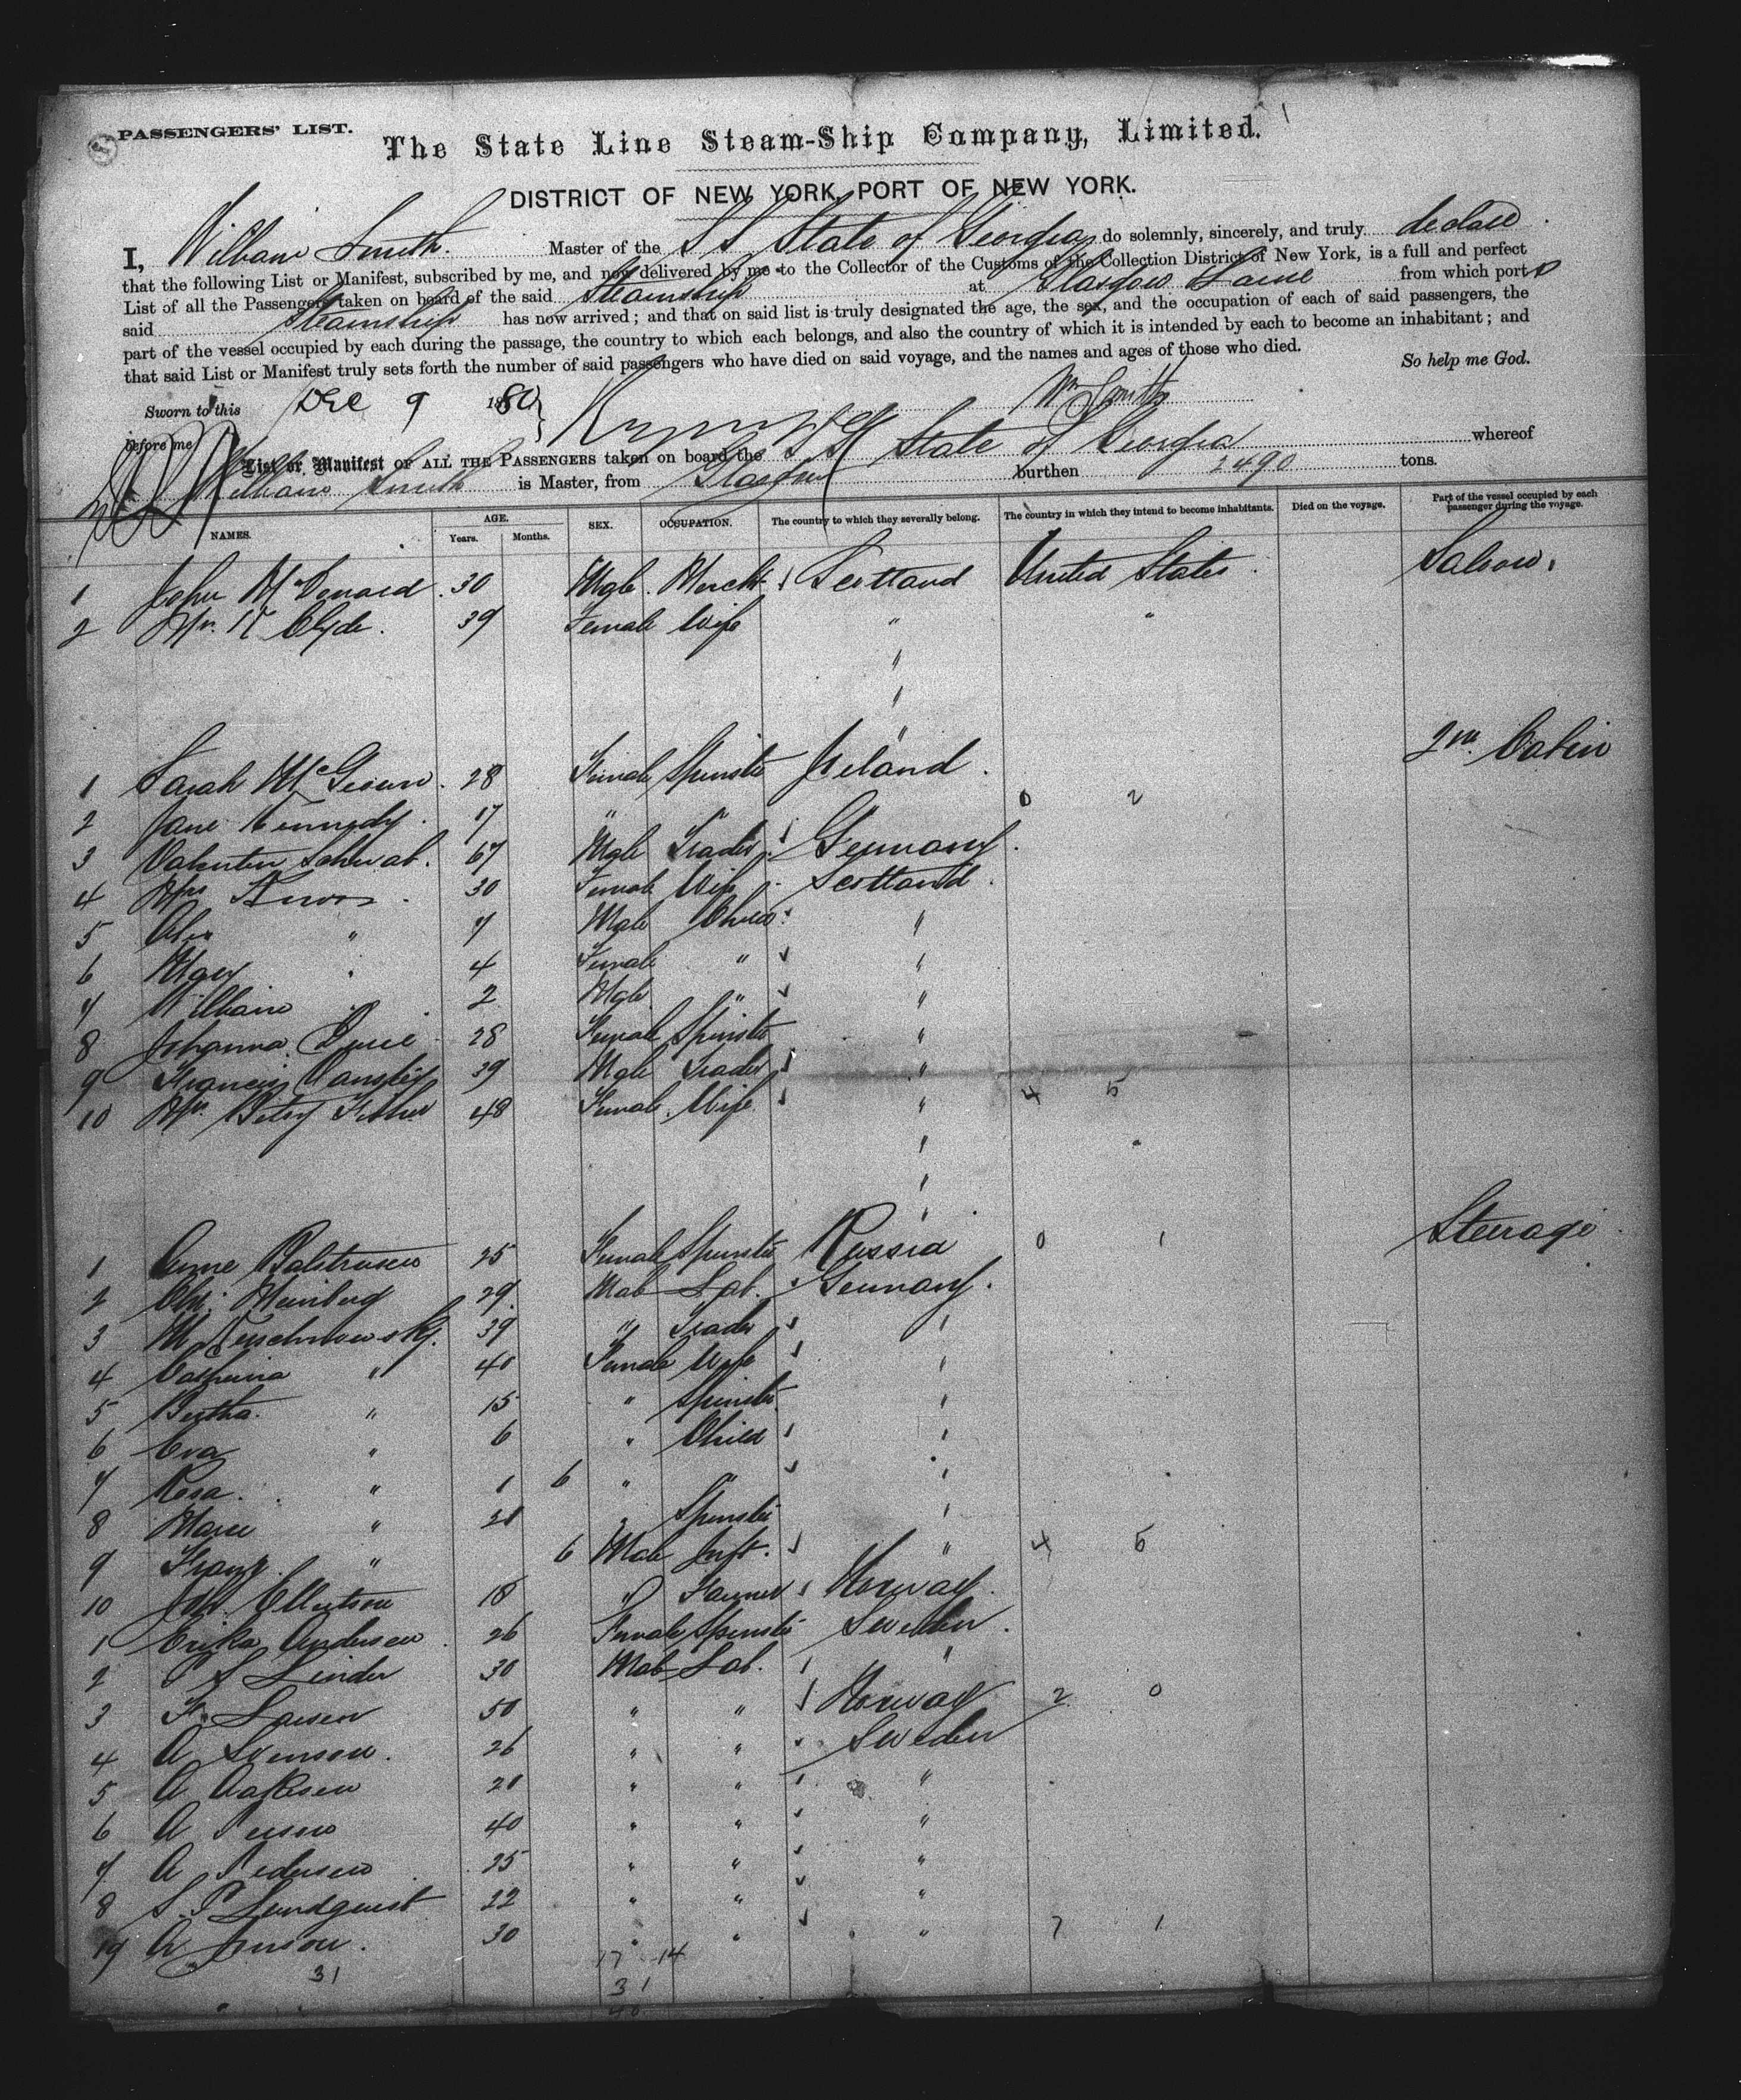 PASSENGERS' LIST.
The State Line Steam-Ship Company, Limited.
DISTRICT OF NEW YORK, PORT OF NEW YORK.
I, William Smith. Master of the S S State of Georgia do solemnly, sincerely, and truly declare
that the following List or Manifest, subscribed by me, and now delivered by me to the Collector of the Customs of the Collection District of New York, is a full and perfect
List of all the Passengers taken on board of the said Steamship at Glasgow Larne from which port
said Steamship has now arrived; and that on said list is truly designated the age, the sex, and the occupation of each of said passengers, the
part of the vessel occupied by each during the passage, the country to which each belongs, and also the country of which it is intended by each to become an inhabitant; and
that said List or Manifest truly sets forth the number of said passengers who have died on said voyage, and the names and ages of those who died.
So help me God.
Sworn to this Dec 9 1880 Wm Smith
before me
List or Manifest OF ALL THE PASSENGERS taken on board the S S State of Georgia whereof
William Smith is Master, from Glasgow burthen 2490 tons.
NAMES. AGE. Years. Months. SEX. OCCUPATION. The country to which they severally belong. The country in which they intend to become inhabitants. Died on the voyage. Part of the vessel occupied by each passenger during the voyage.
1 John McDonald 30 Male Mercht Scotland United States Saloon.
2 Clyde. 39 Female Wife " "
"
"
"
2nd Cabin
1 Sarah 28 Female Spinster Ireland.
2 Jane Kennedy 17 " " 0 2
3 Valentin Schwab. 67 Male Trader Germany.
4 Mrs 30 Female Wife Scotland.
5 Alex " 7 Male Child "
6 Mary " 4 Female " "
7 William " 2 Male " "
8 Johanna 28 Female Spinster "
9 Francis 39 Male Trader "
10 Mrs Betsy 48 Female Wife " 4 5
"
"
"
1 Anne 25 Female Spinster Russia 0 1 Steerage
2 29 Male Lab. Germany.
3 M 39 " Trader "
4 Catherina " 40 Female Wife "
5 Bertha. " 15 " Spinster "
6 Eva " 6 " Child "
7 Rosa. " 1 6 " " "
8 Marie " 21 " Spinster "
9 Franz " 6 Male Inft. " 4 5
10 Ellertson 18 " Farmer Norway.
1 Erika Andersen 26 Female Spinster Sweden.
2 P S Linder 30 Male Lab. "
3 Larsen 50 " " Norway 2 0
4 A Svenson. 26 " " Sweden
5 A 21 " " "
6 A 40 " " "
7 A Pedersen 25 " " "
8 S. P Lundquist 22 " " "
19 A Jenson. 30 " " " 7 1
31 17 14
31